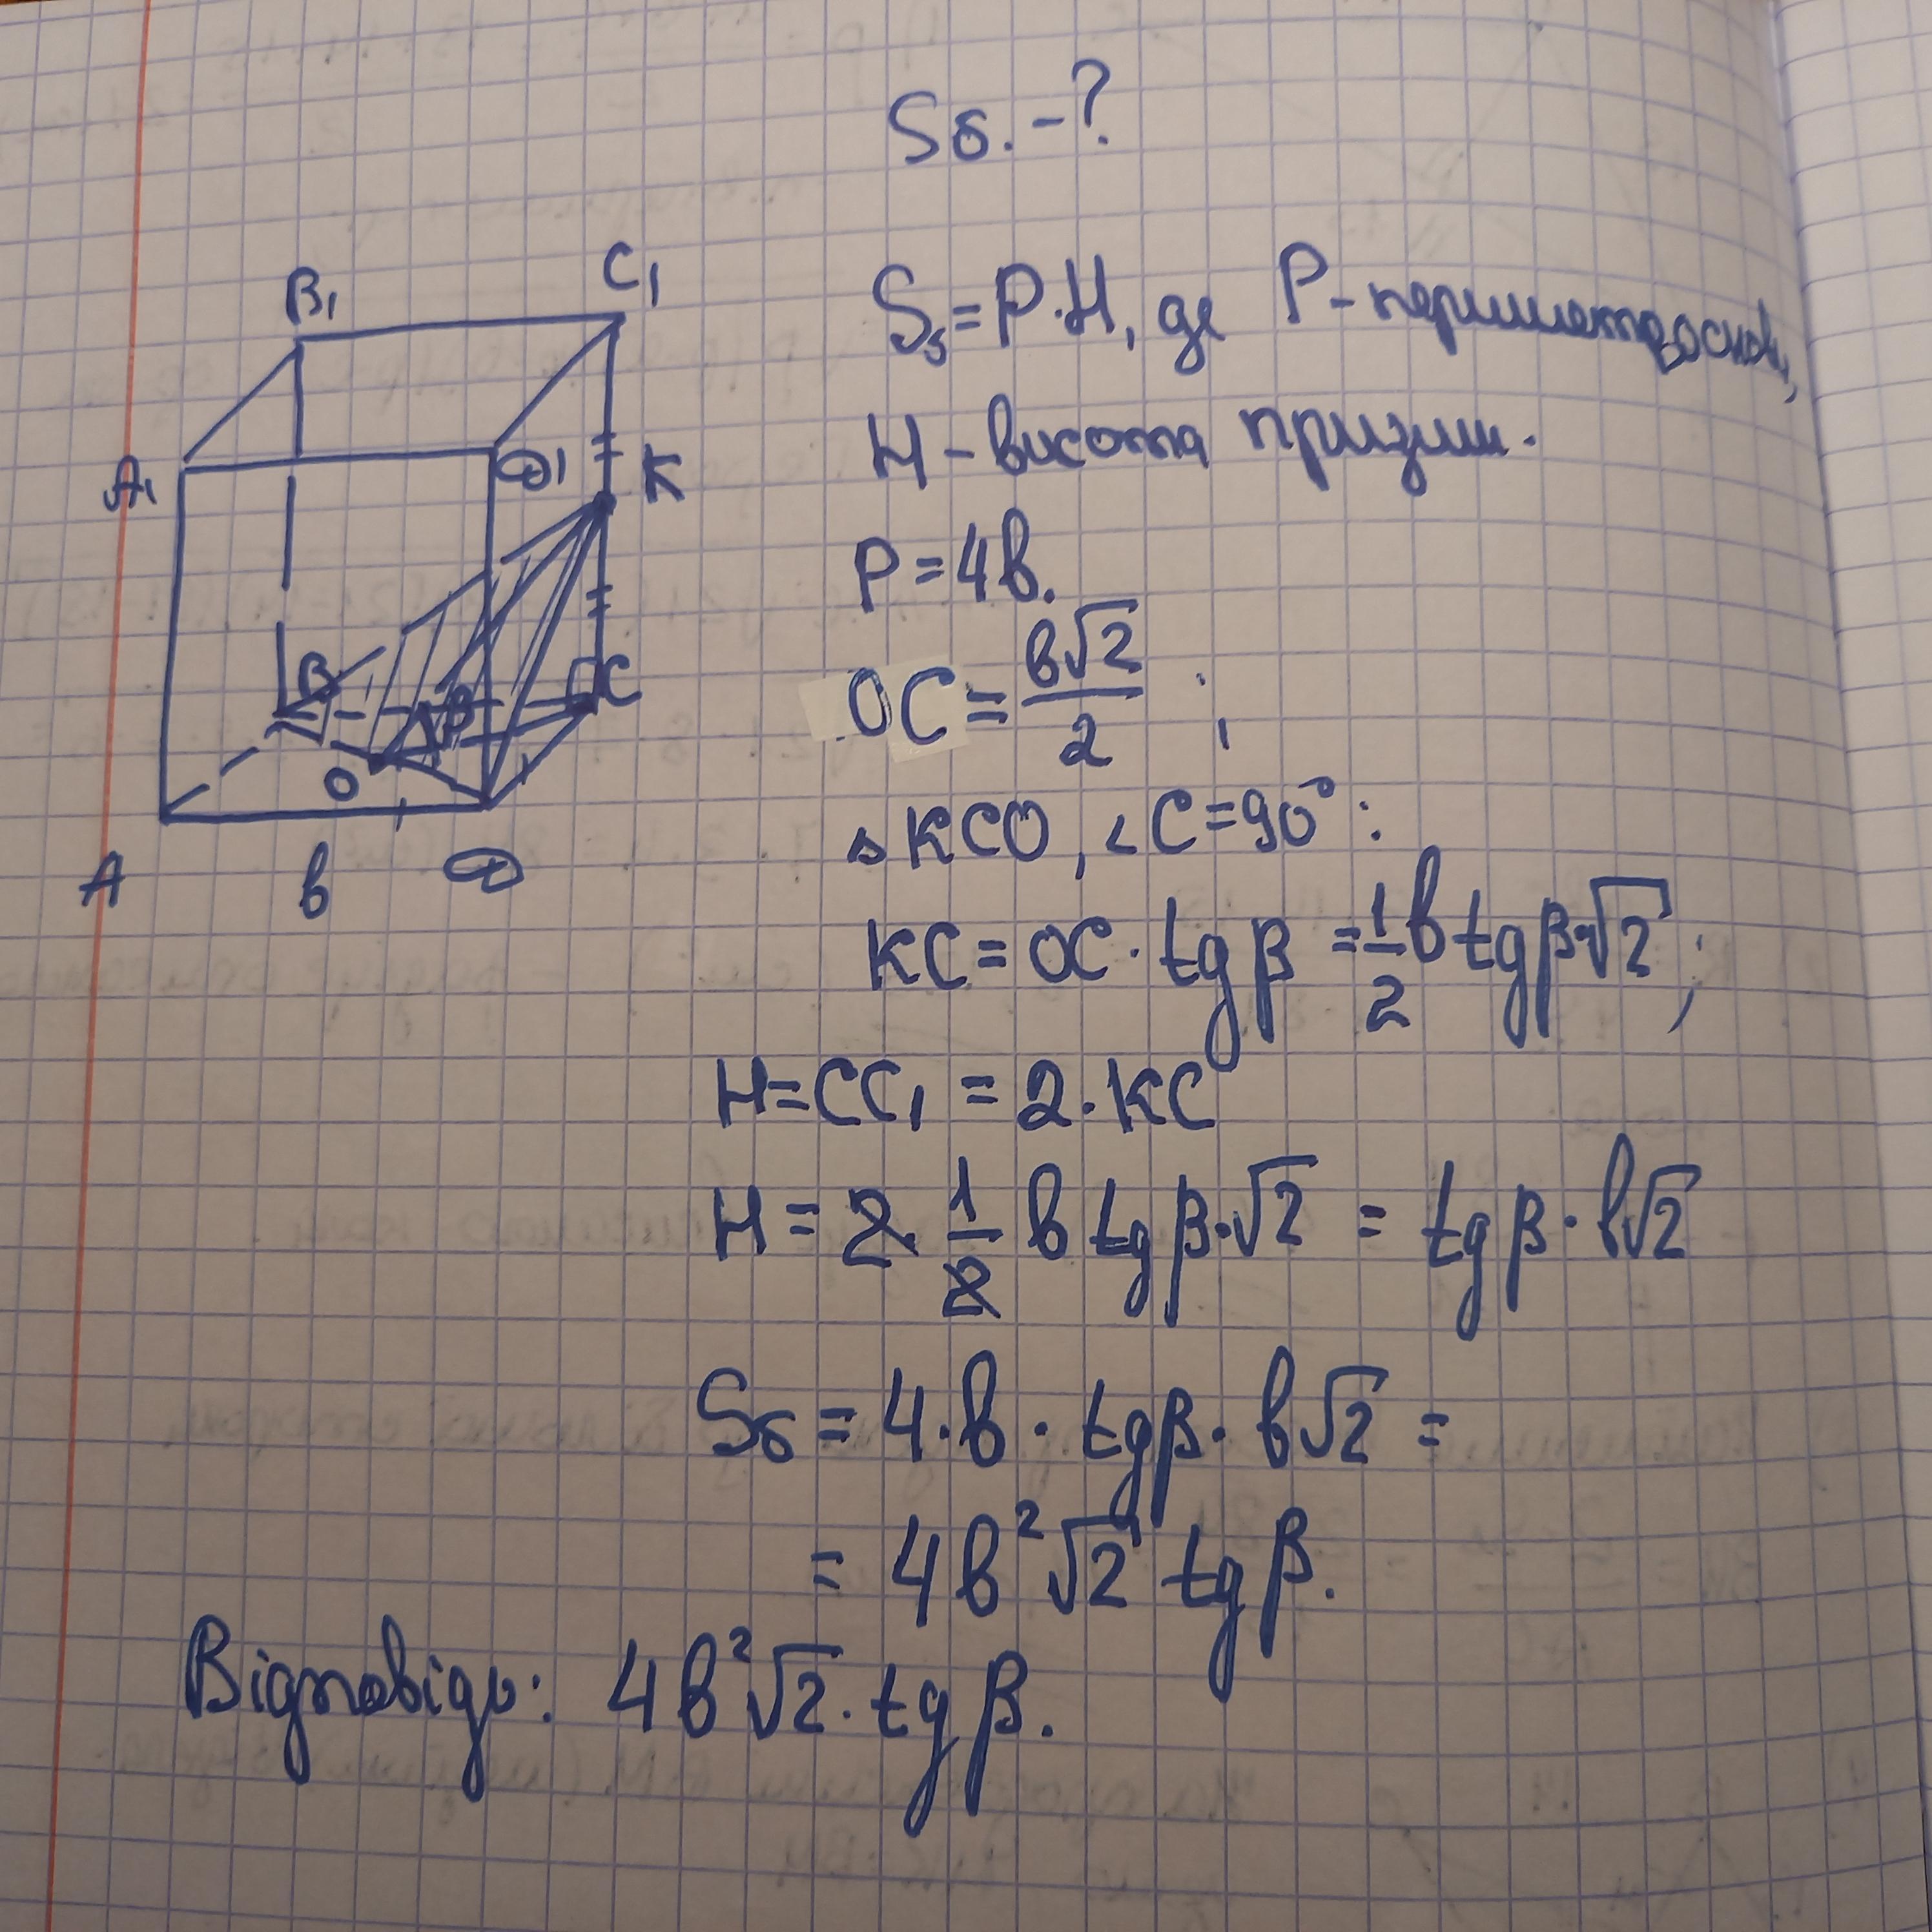 Sб. -?
B₁
C₁
Sб = P·H, де P - периметр основи,
A₁
D₁
K
H - висота призми.
P = 4b.
B
C
β
OC = b√2/2 ;
O
△KCO, ∠C = 90°:
A
b
D
KC = OC · tg β = 1/2 b tg β·√2 ;
H = CC₁ = 2·KC
H = 2 1/2 b tg β·√2 = tg β · b√2
Sб = 4·b · tg β · b√2 =
= 4b²√2 tg β.
Відповідь: 4b²√2 · tg β.